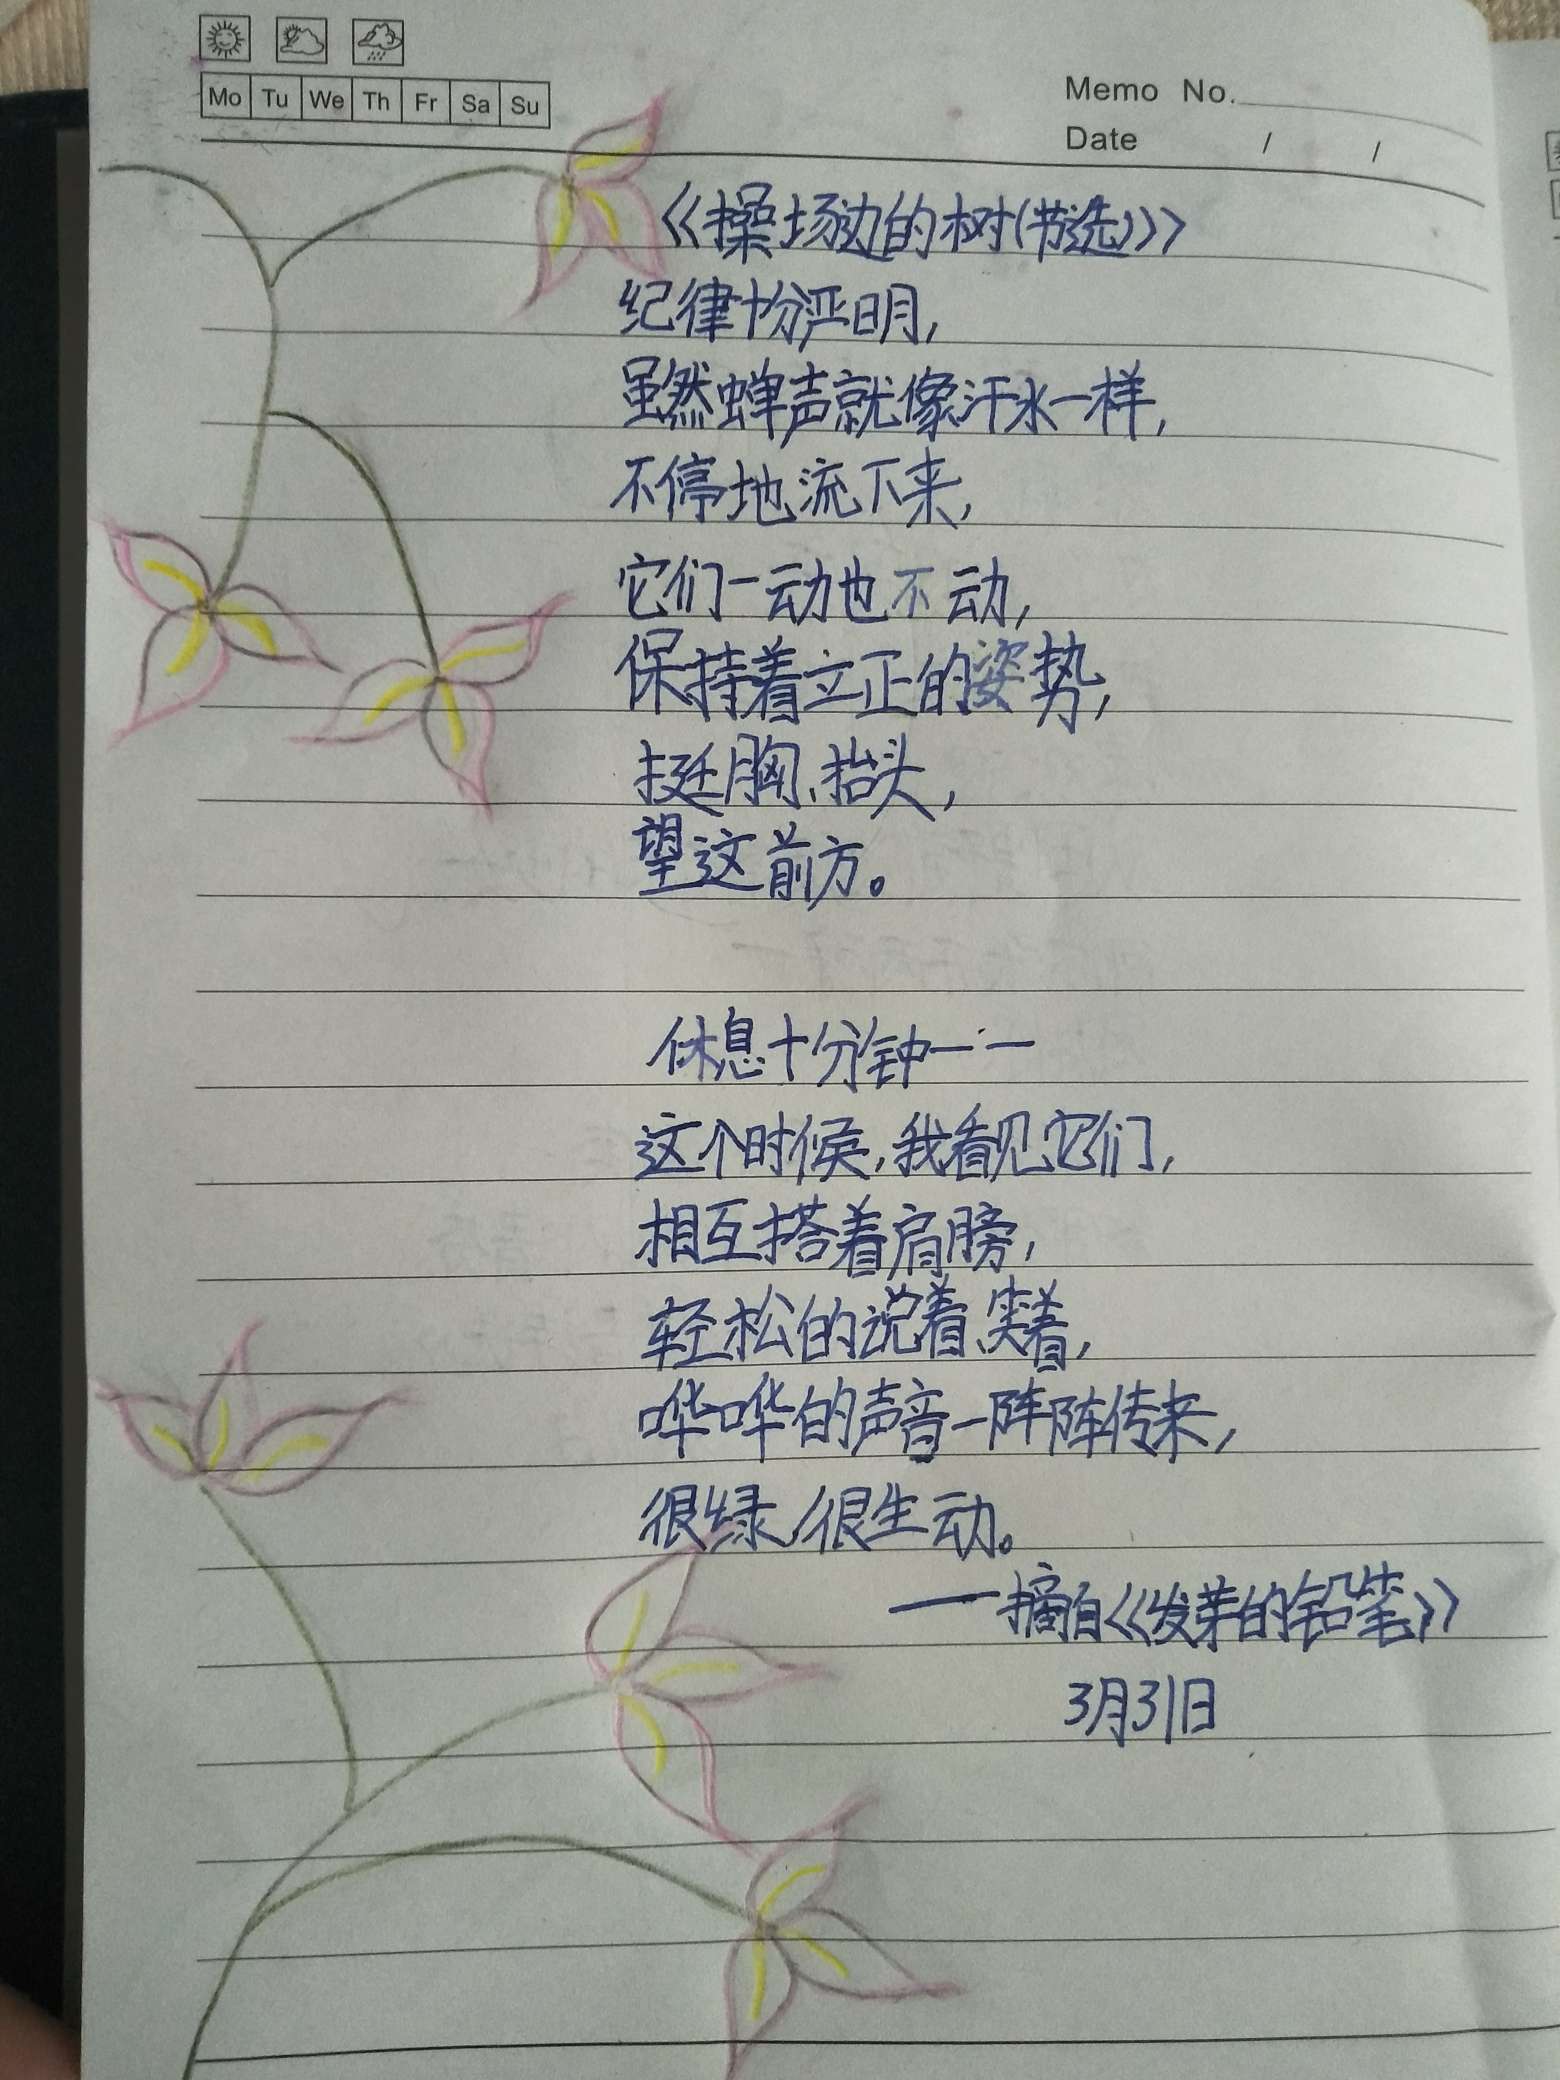 Mo Tu We Th Fr Sa Su
Memo No.
Date / /
《操场边的树(节选)》
纪律十分严明,
虽然蝉声就像汗水一样,
不停地流下来,
它们一动也不动,
保持着立正的姿势,
挺胸、抬头,
望这前方。
休息十分钟——
这个时候,我看见它们,
相互搭着肩膀,
轻松的说着、笑着,
哗哗的声音一阵阵传来,
很绿,很生动。
——摘自《发芽的铅笔》
3月31日